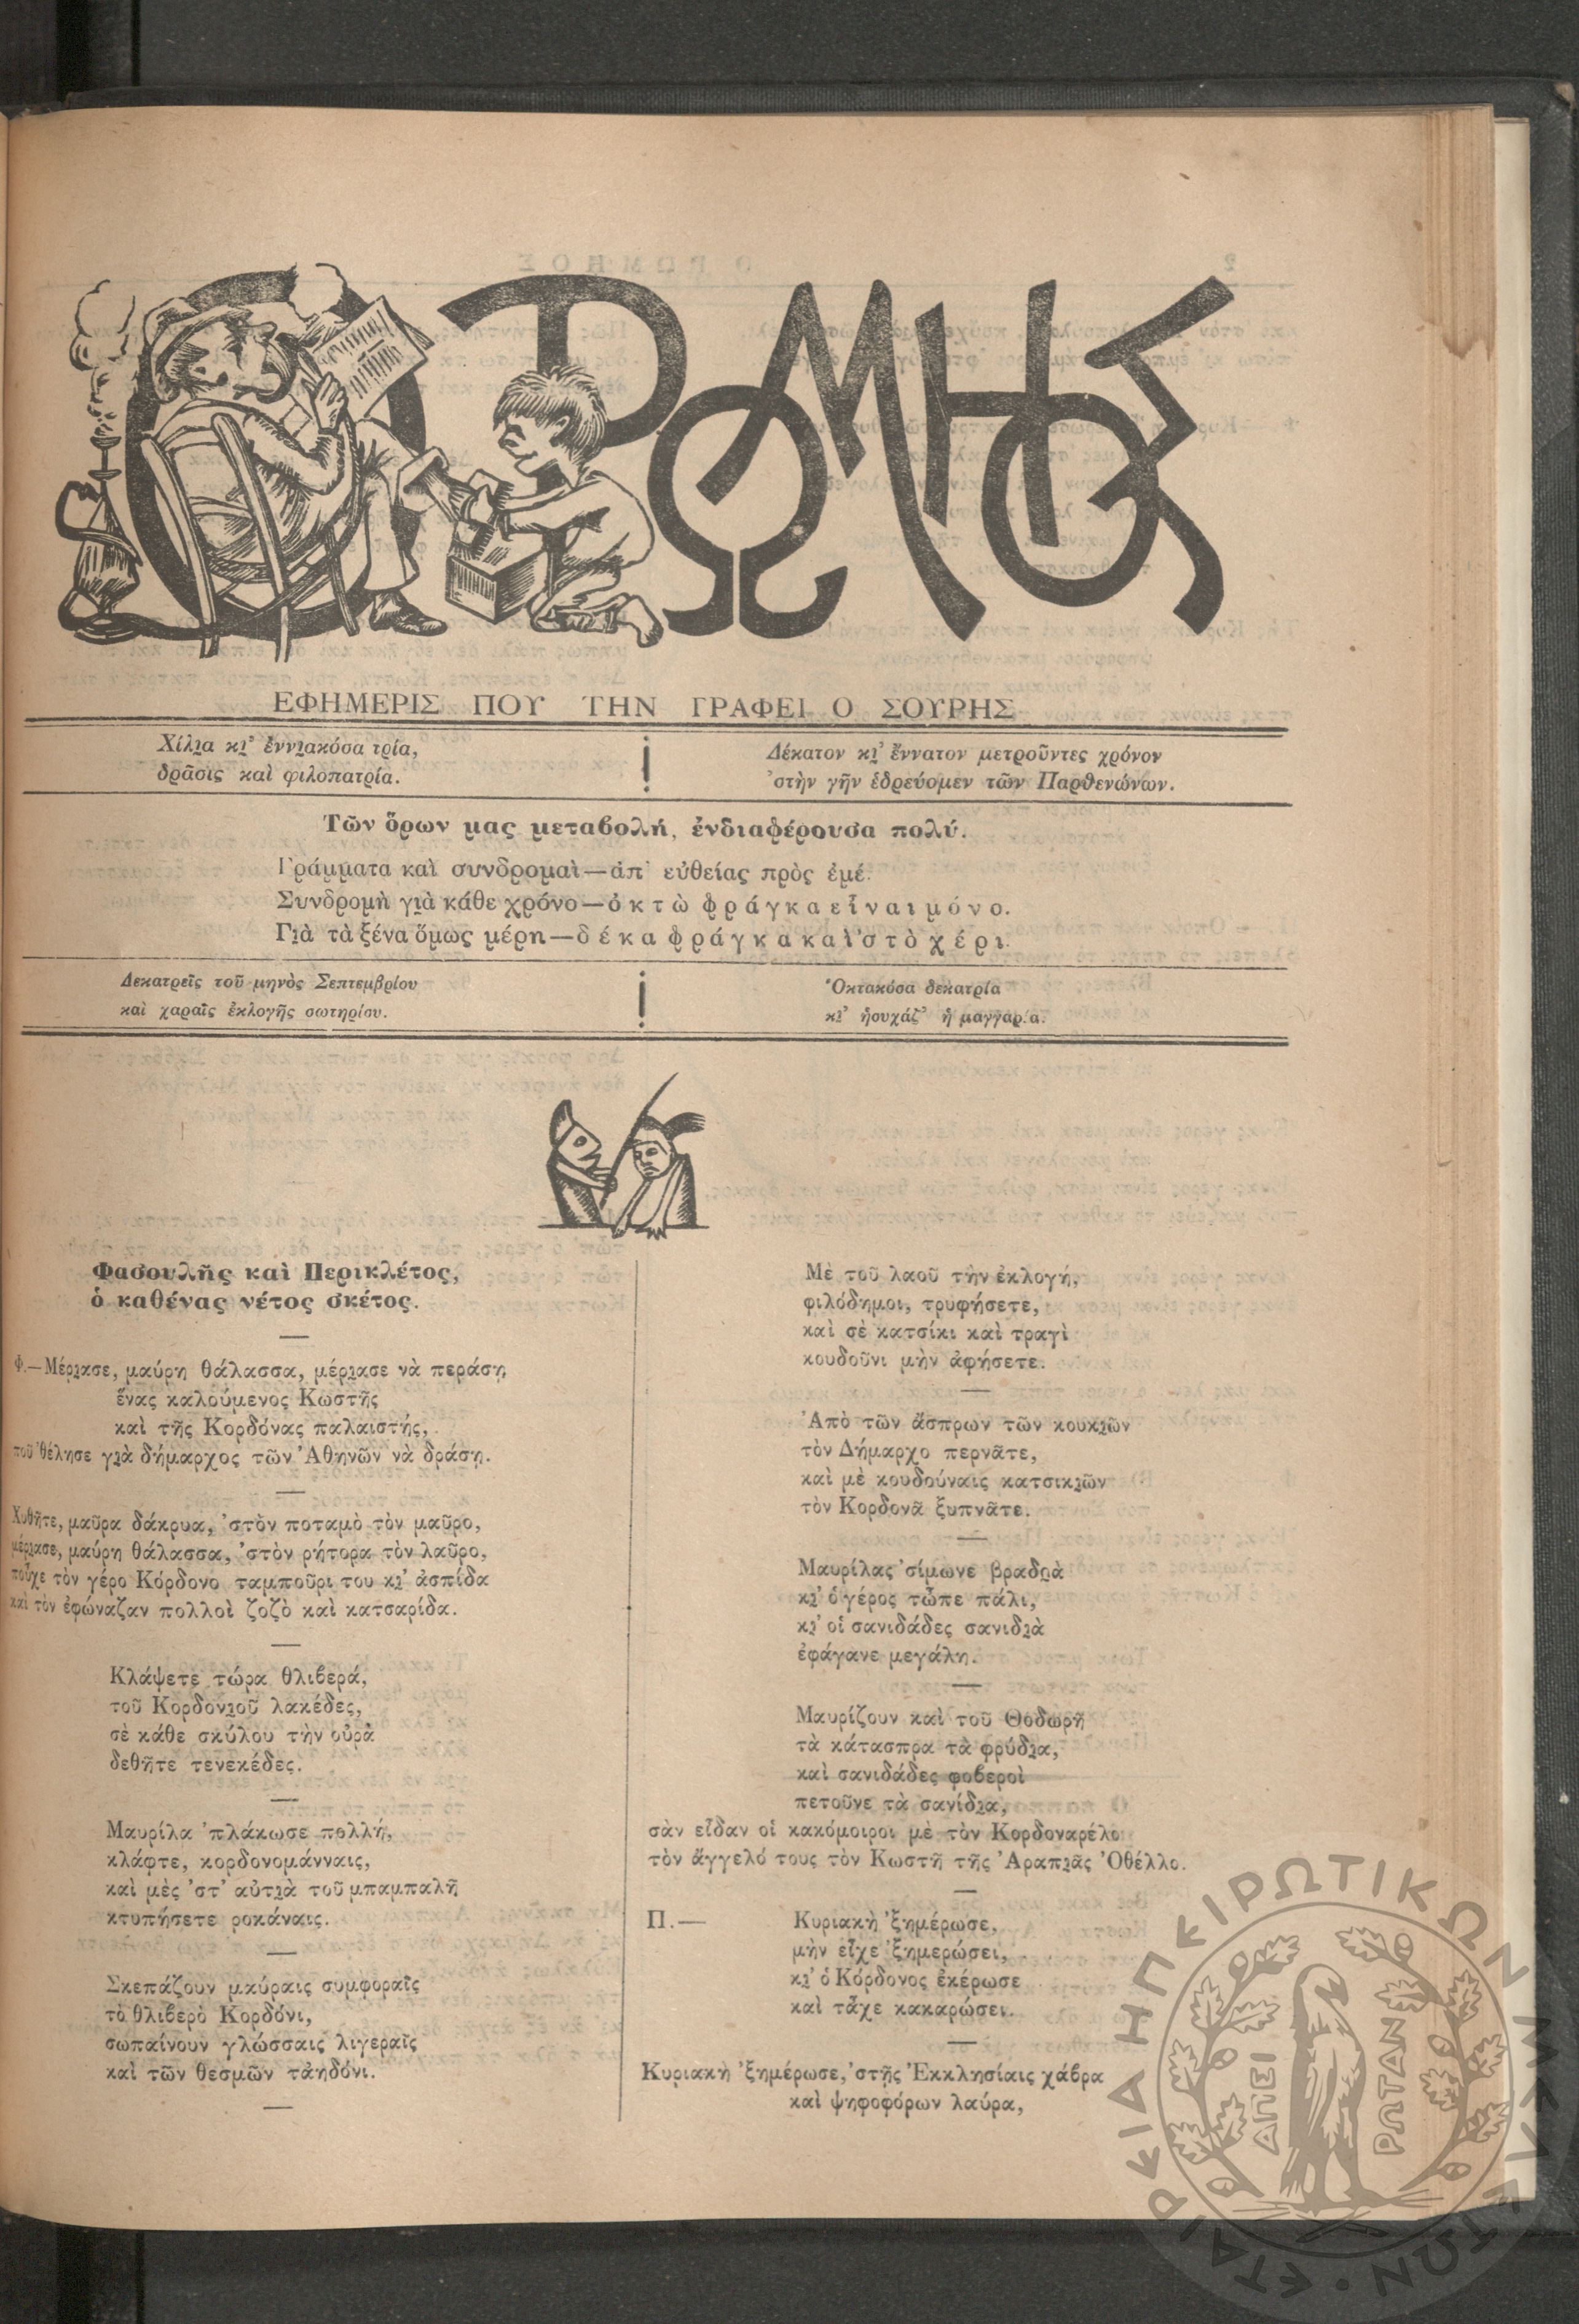 Ο ΡΩΜΗΟΣ
ΕΦΗΜΕΡΙΣ ΠΟΥ ΤΗΝ ΓΡΑΦΕΙ Ο ΣΟΥΡΗΣ
Χίλῃα κῃ’ ἐννῃακόσα τρία,
δρᾶσις καὶ φιλοπατρία.
Δέκατον κῃ’ ἔννατον μετροῦντες χρόνον
’στὴν γῆν ἑδρεύομεν τῶν Παρθενώνων.
Τῶν ὅρων μας μεταβολή, ἐνδιαφέρουσα πολύ.
Γράμματα καὶ συνδρομαὶ—ἀπ’ εὐθείας πρὸς ἐμέ.
Συνδρομὴ γῃὰ κάθε χρόνο—ὀκτὼ φράγκα εἶναι μόνο.
Γῃὰ τὰ ξένα ὅμως μέρη—δέκα φράγκα καὶ ’στὸ χέρι.
Δεκατρεῖς τοῦ μηνὸς Σεπτεμβρίου
καὶ χαραῖς ἐκλογῆς σωτηρίου.
Ὀκτακόσα δεκατρία
κῃ’ ἡσυχάζ’ ἡ μαγγαρία.
Φασουλῆς καὶ Περικλέτος,
ὁ καθένας νέτος σκέτος.
Φ.—Μέρῃασε, μαύρη θάλασσα, μέρῃασε νὰ περάσῃ
ἕνας καλούμενος Κωστῆς
καὶ τῆς Κορδόνας παλαιστής,
ποῦ ’θέλησε γῃὰ δήμαρχος τῶν Ἀθηνῶν νὰ δράσῃ.
Χυθῆτε, μαῦρα δάκρυα, ’στὸν ποταμὸ τὸν μαῦρο,
μέρῃασε, μαύρη θάλασσα, ’στὸν ρήτορα τὸν λαῦρο,
ποὖχε τὸν γέρο Κόρδονο ταμποῦρι του κῃ’ ἀσπίδα
καὶ τὸν ἐφώναζαν πολλοὶ ζοζὸ καὶ κατσαρίδα.
Κλάψετε τώρα θλιβερά,
τοῦ Κορδονῃοῦ λακέδες,
σὲ κάθε σκύλου τὴν οὐρὰ
δεθῆτε τενεκέδες.
Μαυρίλα ’πλάκωσε πολλή,
κλάφτε, κορδονομάνναις,
καὶ μὲς ’στ’ αὐτῃὰ τοῦ μπαμπαλῆ
κτυπήσετε ροκάναις.
Σκεπάζουν μαύραις συμφοραῖς
τὸ θλιβερὸ Κορδόνι,
σωπαίνουν γλώσσαις λιγεραῖς
καὶ τῶν θεσμῶν τἀηδόνι.
Μὲ τοῦ λαοῦ τὴν ἐκλογή,
φιλόδημοι, τρυφήσετε,
καὶ σὲ κατσίκι καὶ τραγὶ
κουδοῦνι μὴν ἀφήσετε.
Ἀπὸ τῶν ἄσπρων τῶν κουκῃῶν
τὸν Δήμαρχο περνᾶτε,
καὶ μὲ κουδούναις κατσικῃῶν
τὸν Κορδονᾶ ξυπνᾶτε.
Μαυρίλας ’σίμωνε βραδυὰ
κῃ’ ὁ γέρος τὦπε πάλι,
κῃ’ οἱ σανιδάδες σανιδῃὰ
ἐφάγανε μεγάλη.
Μαυρίζουν καὶ τοῦ Θοδωρῆ
τὰ κάτασπρα τὰ φρύδῃα,
καὶ σανιδάδες φοβεροὶ
πετοῦνε τὰ σανίδῃα,
σὰν εἶδαν οἱ κακόμοιροι μὲ τὸν Κορδοναρέλο
τὸν ἄγγελό τους τὸν Κωστῆ τῆς Ἀραπῃᾶς Ὀθέλλο.
Π.— Κυριακὴ ’ξημέρωσε,
μὴν εἶχε ’ξημερώσει,
κῃ’ ὁ Κόρδονος ἐκέρωσε
καὶ τἆχε κακαρώσει.
Κυριακὴ ’ξημέρωσε, ’στῆς Ἐκκλησίαις χάβρα
καὶ ψηφοφόρων λαύρα,
ΕΤΑΙΡΕΙΑ ΗΠΕΙΡΩΤΙΚΩΝ ΜΕΛΕΤΩΝ
ΑΠΕΙ
ΡΩΤΑΝ